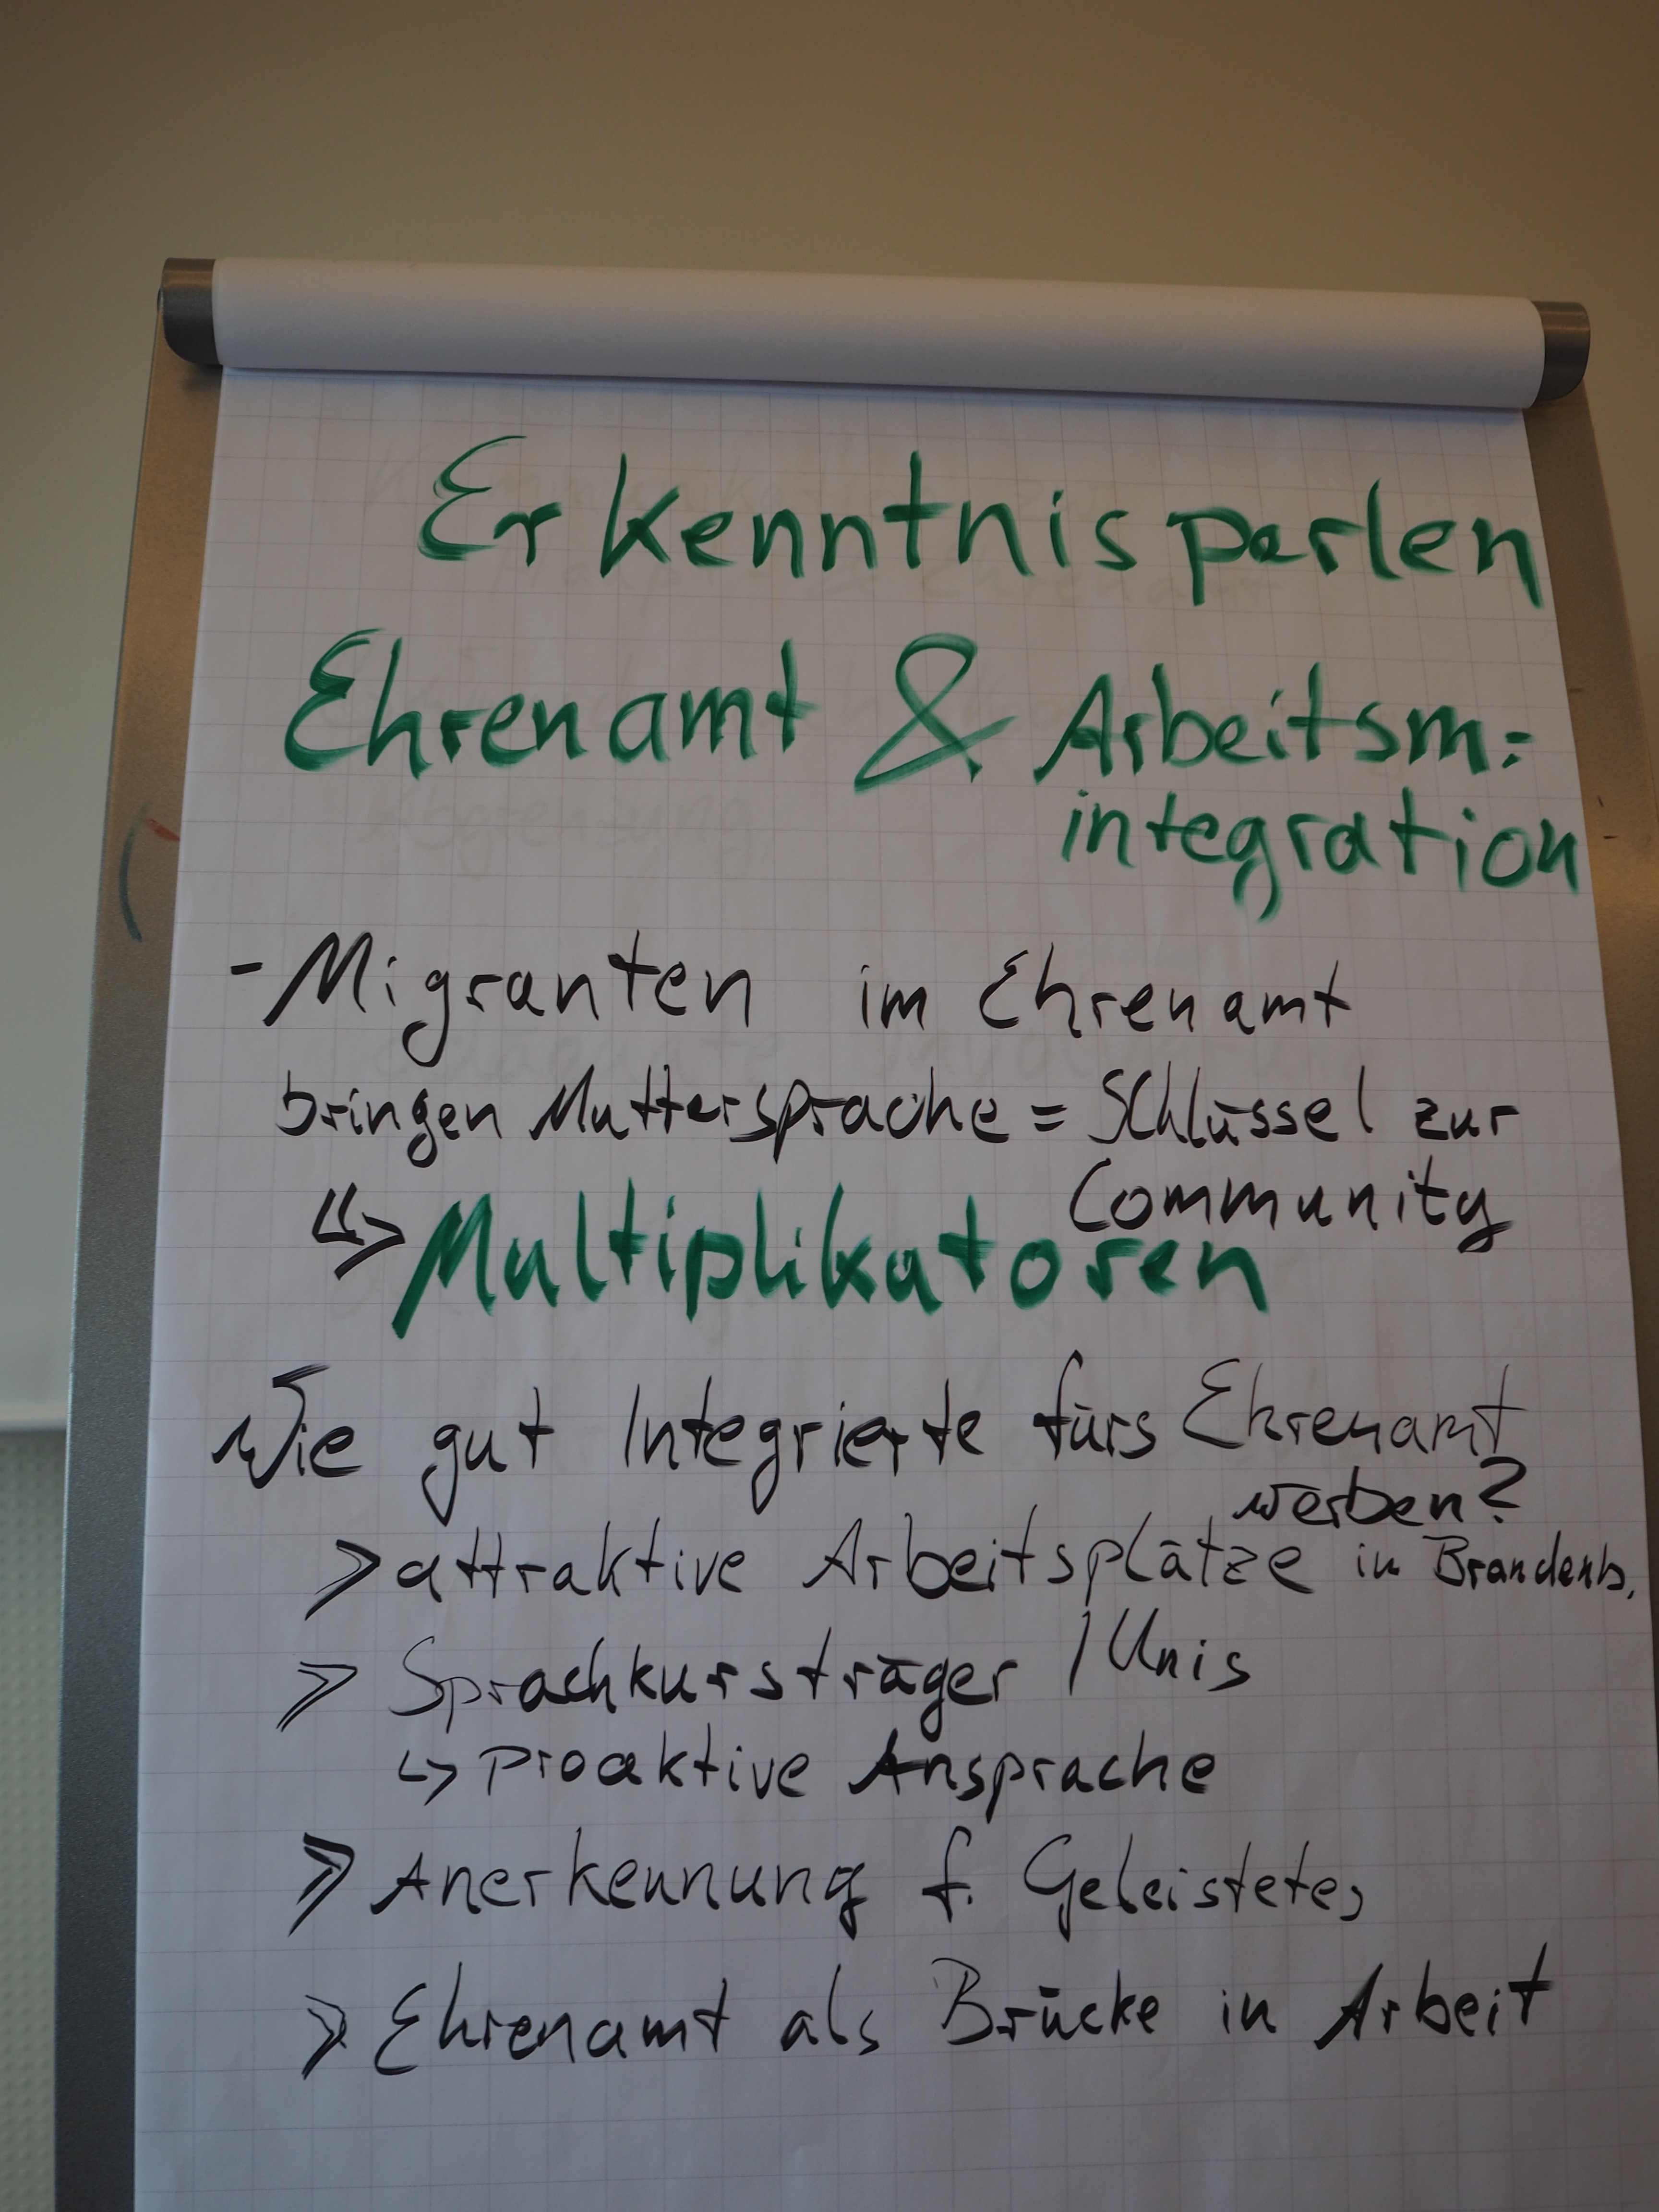 Erkenntnisperlen
Ehrenamt & Arbeitsm.=
integration
- Migranten im Ehrenamt
bringen Muttersprache = Schlüssel zur
Community
↳> Multiplikatoren
Wie gut Integrierte fürs Ehrenamt
werben?
> attraktive Arbeitsplätze in Brandenb.
> Sprachkursträger / Unis
↳ proaktive Ansprache
> Anerkennung f. Geleistetes
> Ehrenamt als Brücke in Arbeit